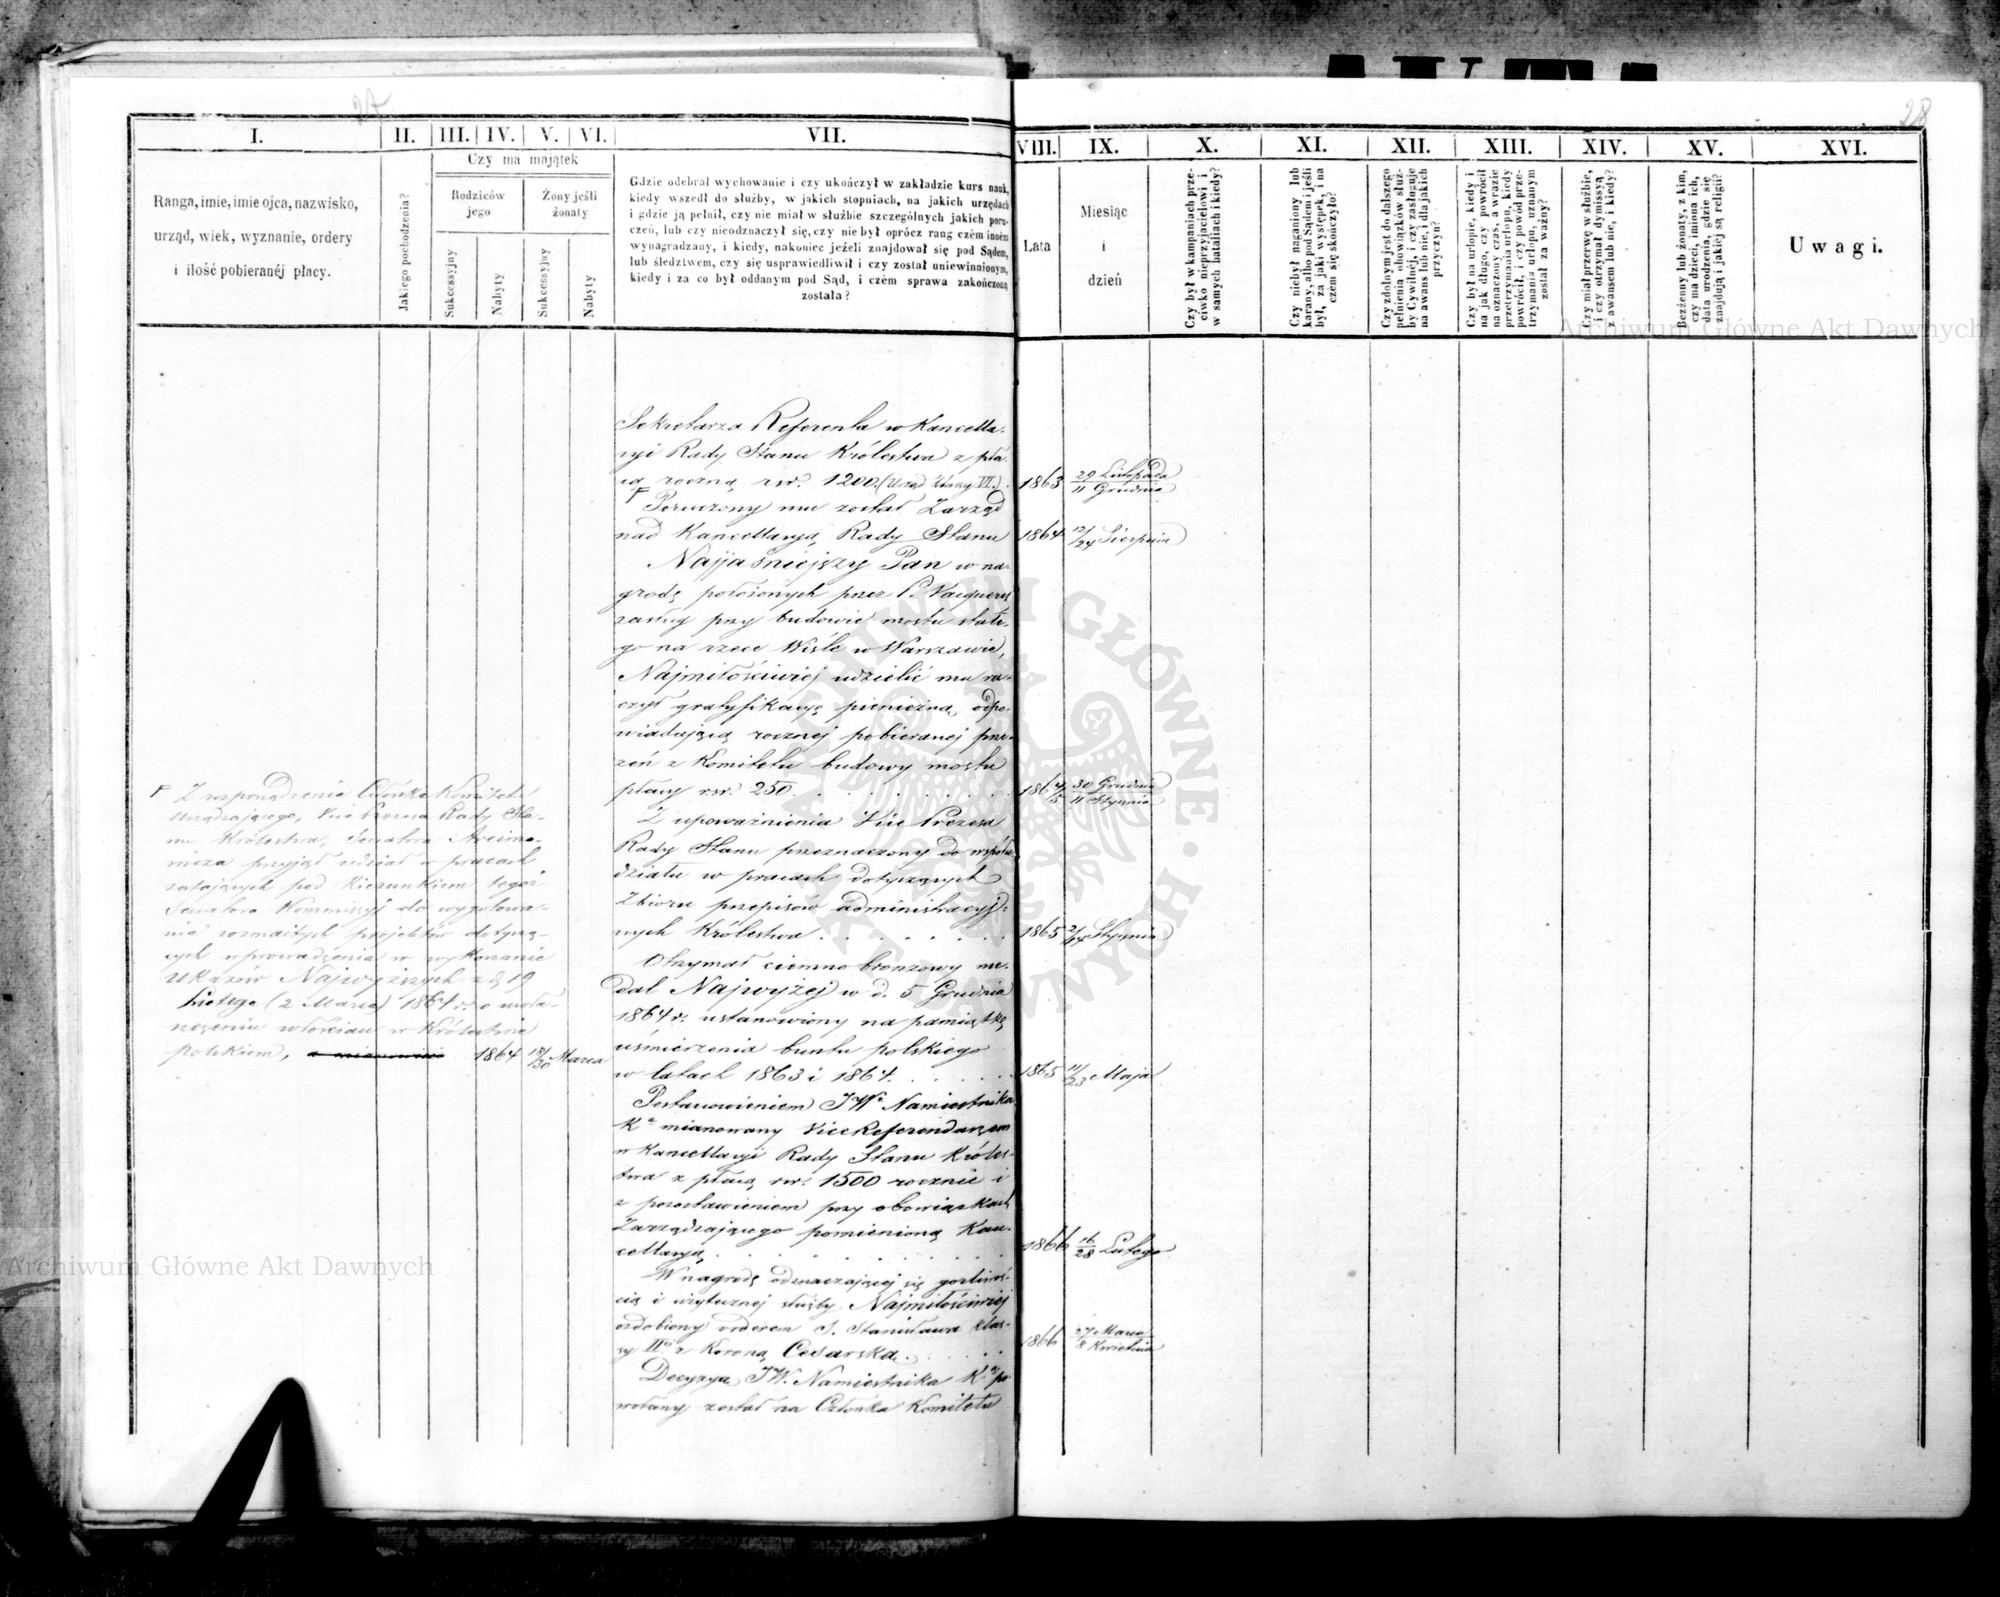 27
I.
II.
III.
IV.
V.
VI.
VII.
Czy ma majątek
Ranga, imie, imie ojca, nazwisko,
urząd, wiek, wyznanie, ordery
i ilość pobieranéj płacy.
Jakiego pochodzenia?
Rodziców
jego
Żony jeśli
żonaty
Sukcessyjny
Nabyty
Sukcessyjny
Nabyty
Gdzie odebrał wychowanie i czy ukończył w zakładzie kurs nauk,
kiedy wszedł do służby, w jakich stopniach, na jakich urzędach
i gdzie ją pełnił, czy nie miał w służbie szczególnych jakich poru-
czeń, lub czy nieodznaczył się, czy nie był oprócz rang czém inném
wynagradzany, i kiedy, nakoniec jeżeli znajdował się pod Sądem,
lub śledztwem, czy się usprawiedliwił i czy został uniewinnionym,
kiedy i za co był oddanym pod Sąd, i czém sprawa zakończoną
została?
Z rozporządzenia Członka Komitetu
Urządzającego, Vice Prezesa Rady Sta-
nu Królestwa, Senatora Arcimo-
wicza przyjął udział w pracach
zostających pod kierunkiem tegoż
Senatora Kommissyj do wygotowa-
nia rozmaitych projektów dotyczą-
cych wprowadzenia w wykonanie
Ukazów Najwyższych z d. 19
Lutego (2 Marca) 1864 r. o
włościan w Królestwie
polskiem, 1864 18/30 Marca
Sekretarza Referenta w Kancella-
ryi Rady Stanu Królestwa z pła-
cą roczną rsr. 1200. (Urząd klassy VI.)
Poruczony mu został Zarząd
nad Kancellaryą Rady Stanu
Najjaśniejszy Pan w na-
grodę położonych przez P.
zasług przy budowie mostu stałe-
go na rzece Wiśle w Warszawie,
Najmiłościwiej udzielić mu ra-
czył gratyfikacyę pieniężną, odpo-
wiadającą rocznej pobieranej prze-
zeń z Komitetu budowy mostu
płacy rsr. 250. . . . . . . . .
Z upoważnienia Vice Prezesa
Rady Stanu przeznaczony do współu-
działu w pracach dotyczących
Zbioru przepisów administracyj-
nych Królestwa . . . . . . .
Otrzymał ciemno bronzowy me-
dal Najwyżej w d. 5 Grudnia
1864 r. ustanowiony na pamiątkę
uśmierzenia buntu polskiego
w latach 1863 i 1864. . . . . .
Postanowieniem JW. Namiestnika
Kr. mianowany Vice Referendarzem
w Kancellaryi Rady Stanu Króles-
twa z płacą rsr. 1500 rocznie i
z pozostawieniem przy obowiązkach
Zarządzającego pomienioną Kan-
cellaryą . . . . . . . . . .
W nagrodę odznaczającej się gorliwoś-
cią i użytecznej służby Najmiłościwiej
ozdobiony orderem S. Stanisława klas-
sy IIej z Koroną Cesarską. . . . . .
Decyzyą JW. Namiestnika Kr. po-
wołany został na Członka Komitetu
28
VIII.
IX.
X.
XI.
XII.
XIII.
XIV.
XV.
XVI.
Lata
Miesiąc
i
dzień
Czy był w kampaniach prze-
ciwko nieprzyjacielowi i
w samych bataliach i kiedy?
Czy niebył naganiony lub
karany, albo pod Sądem i jeśli
był, za jaki występek, i na
czém się skończyło?
Czy zdolnym jest do dalszego
pełnienia obowiązków służ-
by Cywilnéj, i czy zasługuje
na awans lub nie, i dla jakich
przyczyn?
Czy był na urlopie, kiedy i
na jak długo, czy powrócił
na oznaczony czas, a w razie
przetrzymania urlopu, kiedy
powrócił, i czy powód prze-
trzymania urlopu, uznanym
został za ważny?
Czy miał przerwę w służbie,
i czy otrzymał dymissyą
z awansem lub nie, i kiedy?
Bezżenny lub żonaty, z kim,
czy ma dzieci, imiona ich,
data urodzenia, gdzie się
znajdują i jakiéj są religii?
Uwagi.
1863 29 Listopada/11 Grudnia
1864 12/24 Sierpnia
1864/5 30 Grudnia/11 Stycznia
1865 2/14 Stycznia
1865 11/23 Maja
1866 16/28 Lutego
1866 27 Marca/8 Kwietnia
Archiwum Główne Akt Dawnych
Archiwum Główne Akt Dawnych
ARCHIWUM GŁÓWNE AKT DAWNYCH